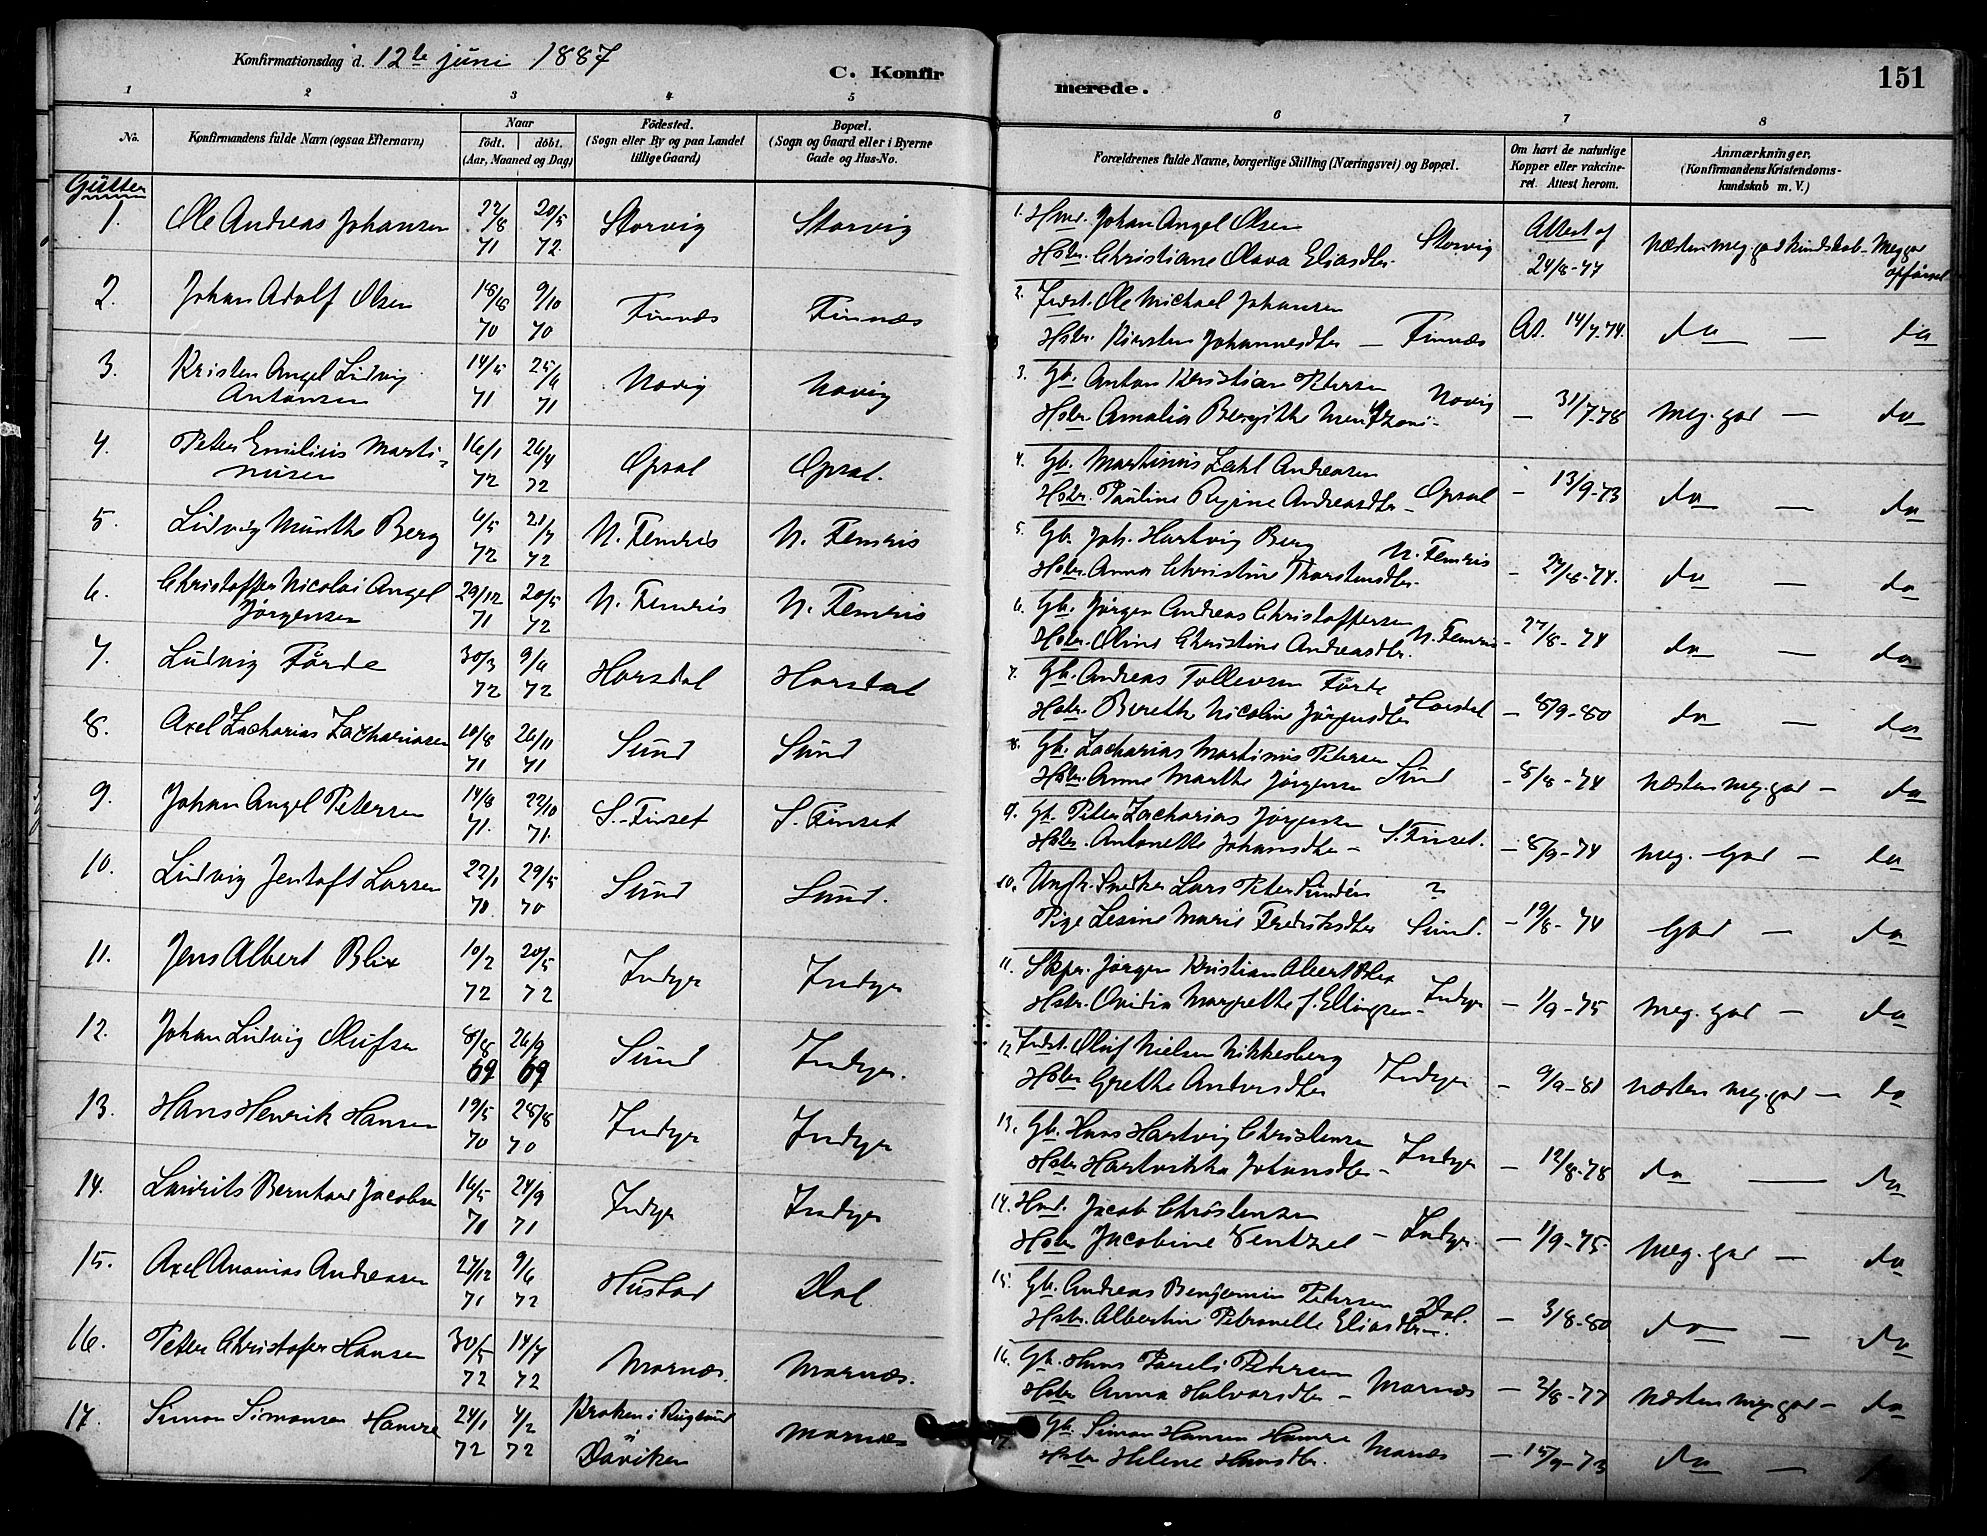 Konfirmationsdag d. 12te juni 1887
C. Konfirmerede.
151
1 2 3 4 5 6 7 8
No.
Konfirmandens fulde Navn (ogsaa Efternavn)
Naar
födt. döbt.
(Aar, Maaned og Dag)
Födested.
(Sogn eller By og paa Landet
tillige Gaard)
Bopæl.
(Sogn og Gaard eller i Byerne
Gade og Hus-No.
Forældrenes fulde Navne, borgerlige Stilling (Næringsvei) og Bopæl.
Om havt de naturlige
Kopper eller vakcine-
ret. Attest herom.
Anmærkninger.
(Konfirmandens Kristendoms-
kundskab m. V.)
Gutter
1. Ole Andreas Johansen 22/8 71 20/5 72 Storvig Storvig
1. Hmd. Johan Angel Olsen
Hstr. Christiane Olava Eliasdtr. Storvig Attest af 24/8-77 Næsten meg. god kundskab - Meg. god opförsel
2. Johan Adolf Olsen 18/8 70 9/10 70 Finnæs Finnæs
2. Indst. Ole Michael Johansen
Hstr. Kirsten Johannesdtr - Finnæs At. 14/7-74. do - do
3. Kristen Angel Ludvig
Antonsen 14/5 71 25/6 71 Novig Novig
3. Gb. Anton Kristian Petersen
Hstr. Amalia Bergithe Novig - 31/7-78 Meg. god - do
4. Peter Emilius Marti-
nusen 16/1 72 26/4 72 Opsal Opsal.
4. Gb. Martinus Zahl Andreasen
Hstr. Pauline Regine Andreasdtr - Opsal - 13/9-73 do - do
5. Ludvig Munthe Berg 6/5 72 21/7 72 N. Femris N. Femris
5. Gb. Joh. Hartvig Berg
Hstr. Anna Christine Thorstensdtr. N. Femris - 27/8-74. do - do
6. Christoffer Nicolai Angel
Jörgensen 29/12 71 20/5 72 N. Femris N. Femris
6. Gb. Jörgen Andreas Christoffersen
Hstr. Oline Christine Andreasdtr. N. Femris - 27/8-74 do - do
7. Ludvig Förde 30/3 72 9/9 72 Horsdal Horsdal
7. Gb. Andreas Tollevsen Förde
Hstr. Berethe Nicoline Jörgensdtr Horsdal - 8/9-80 do - do
8. Axel Zacharias Zachariasen 10/8 71 26/11 71 Sund Sund
8. Gb. Zacharias Martinus Petersen
Hstr. Anne Marthe Jörgensen Sund - 8/8-74 Næsten meg. god - do
9. Johan Angel Petersen 14/8 71. 22/10 71. S. Finset S. Finset
9. Gb. Peter Zacharias Jörgensen
Hstr. Antonette Johansdtr - S. Finset. - 8/9-74 Meg. God - do
10. Ludvig Jentoft Larsen 22/1 70. 29/5 70 Sund Sund.
10. Ungk. Snedker Lars Peter Sundén ?
Pige Lesine Marie Fredriksdtr Sund. - 19/8-74 God - do
11. Jens Albert Blix 10/2 72 20/5 72 Indyr Indyr
11. Skpr. Jörgen Kristian Albert Blix
Hstr. Ovidia Margrethe f. Ellingsen - Indyr - 1/9-75 Meg. god - do
12. Johan Ludvig Olufsen 8/8 69 26/9 69 Sund Indyr.
12 Indst. Oluf Nielsen Nikkesberg
Hstr Grethe Andersdtr Indyr - 9/9-81 Næsten meg. god - do
13. Hans Henrik Hansen 19/5 70 28/8 70 Indyr Indyr
13. Gb. Hans Hartvig Christensen
Hstr Hartvikka Johansdtr - Indyr - 12/8-78 do - do
14. Laurits Bernhard Jacobsen 16/5 70 24/9 71 Indyr Indyr
14. Hmd. Jacob Christensen
Hstr Jacobine Wentzel - Indyr. - 1/9-75 Meg. god - do
15. Axel Ananias Andreasen 27/12 71 9/6 72 Hustad Dal
15. Gb. Andreas Benjamin Petersen
Hstr. Albertine Petronelle Eliasdtr. Dal. - 3/8-80 do - do
16. Peter Christofer Hansen 30/5 72 14/7 72 Marnæs. Marnæs.
16. Gb. Hans Pareli Petersen
Hstr Anna Halvorsdtr - Marnæs - 2/8-77 Næsten meg. god - do
17. Simon Simonsen Hamre 24/1 72 4/2 72 Kroken i Rugsund
Daviken Marnæs
17. Gb. Simon Hansen Hamre
Hstr Helene Hansdtr. Marnæs - 15/9-73 do -